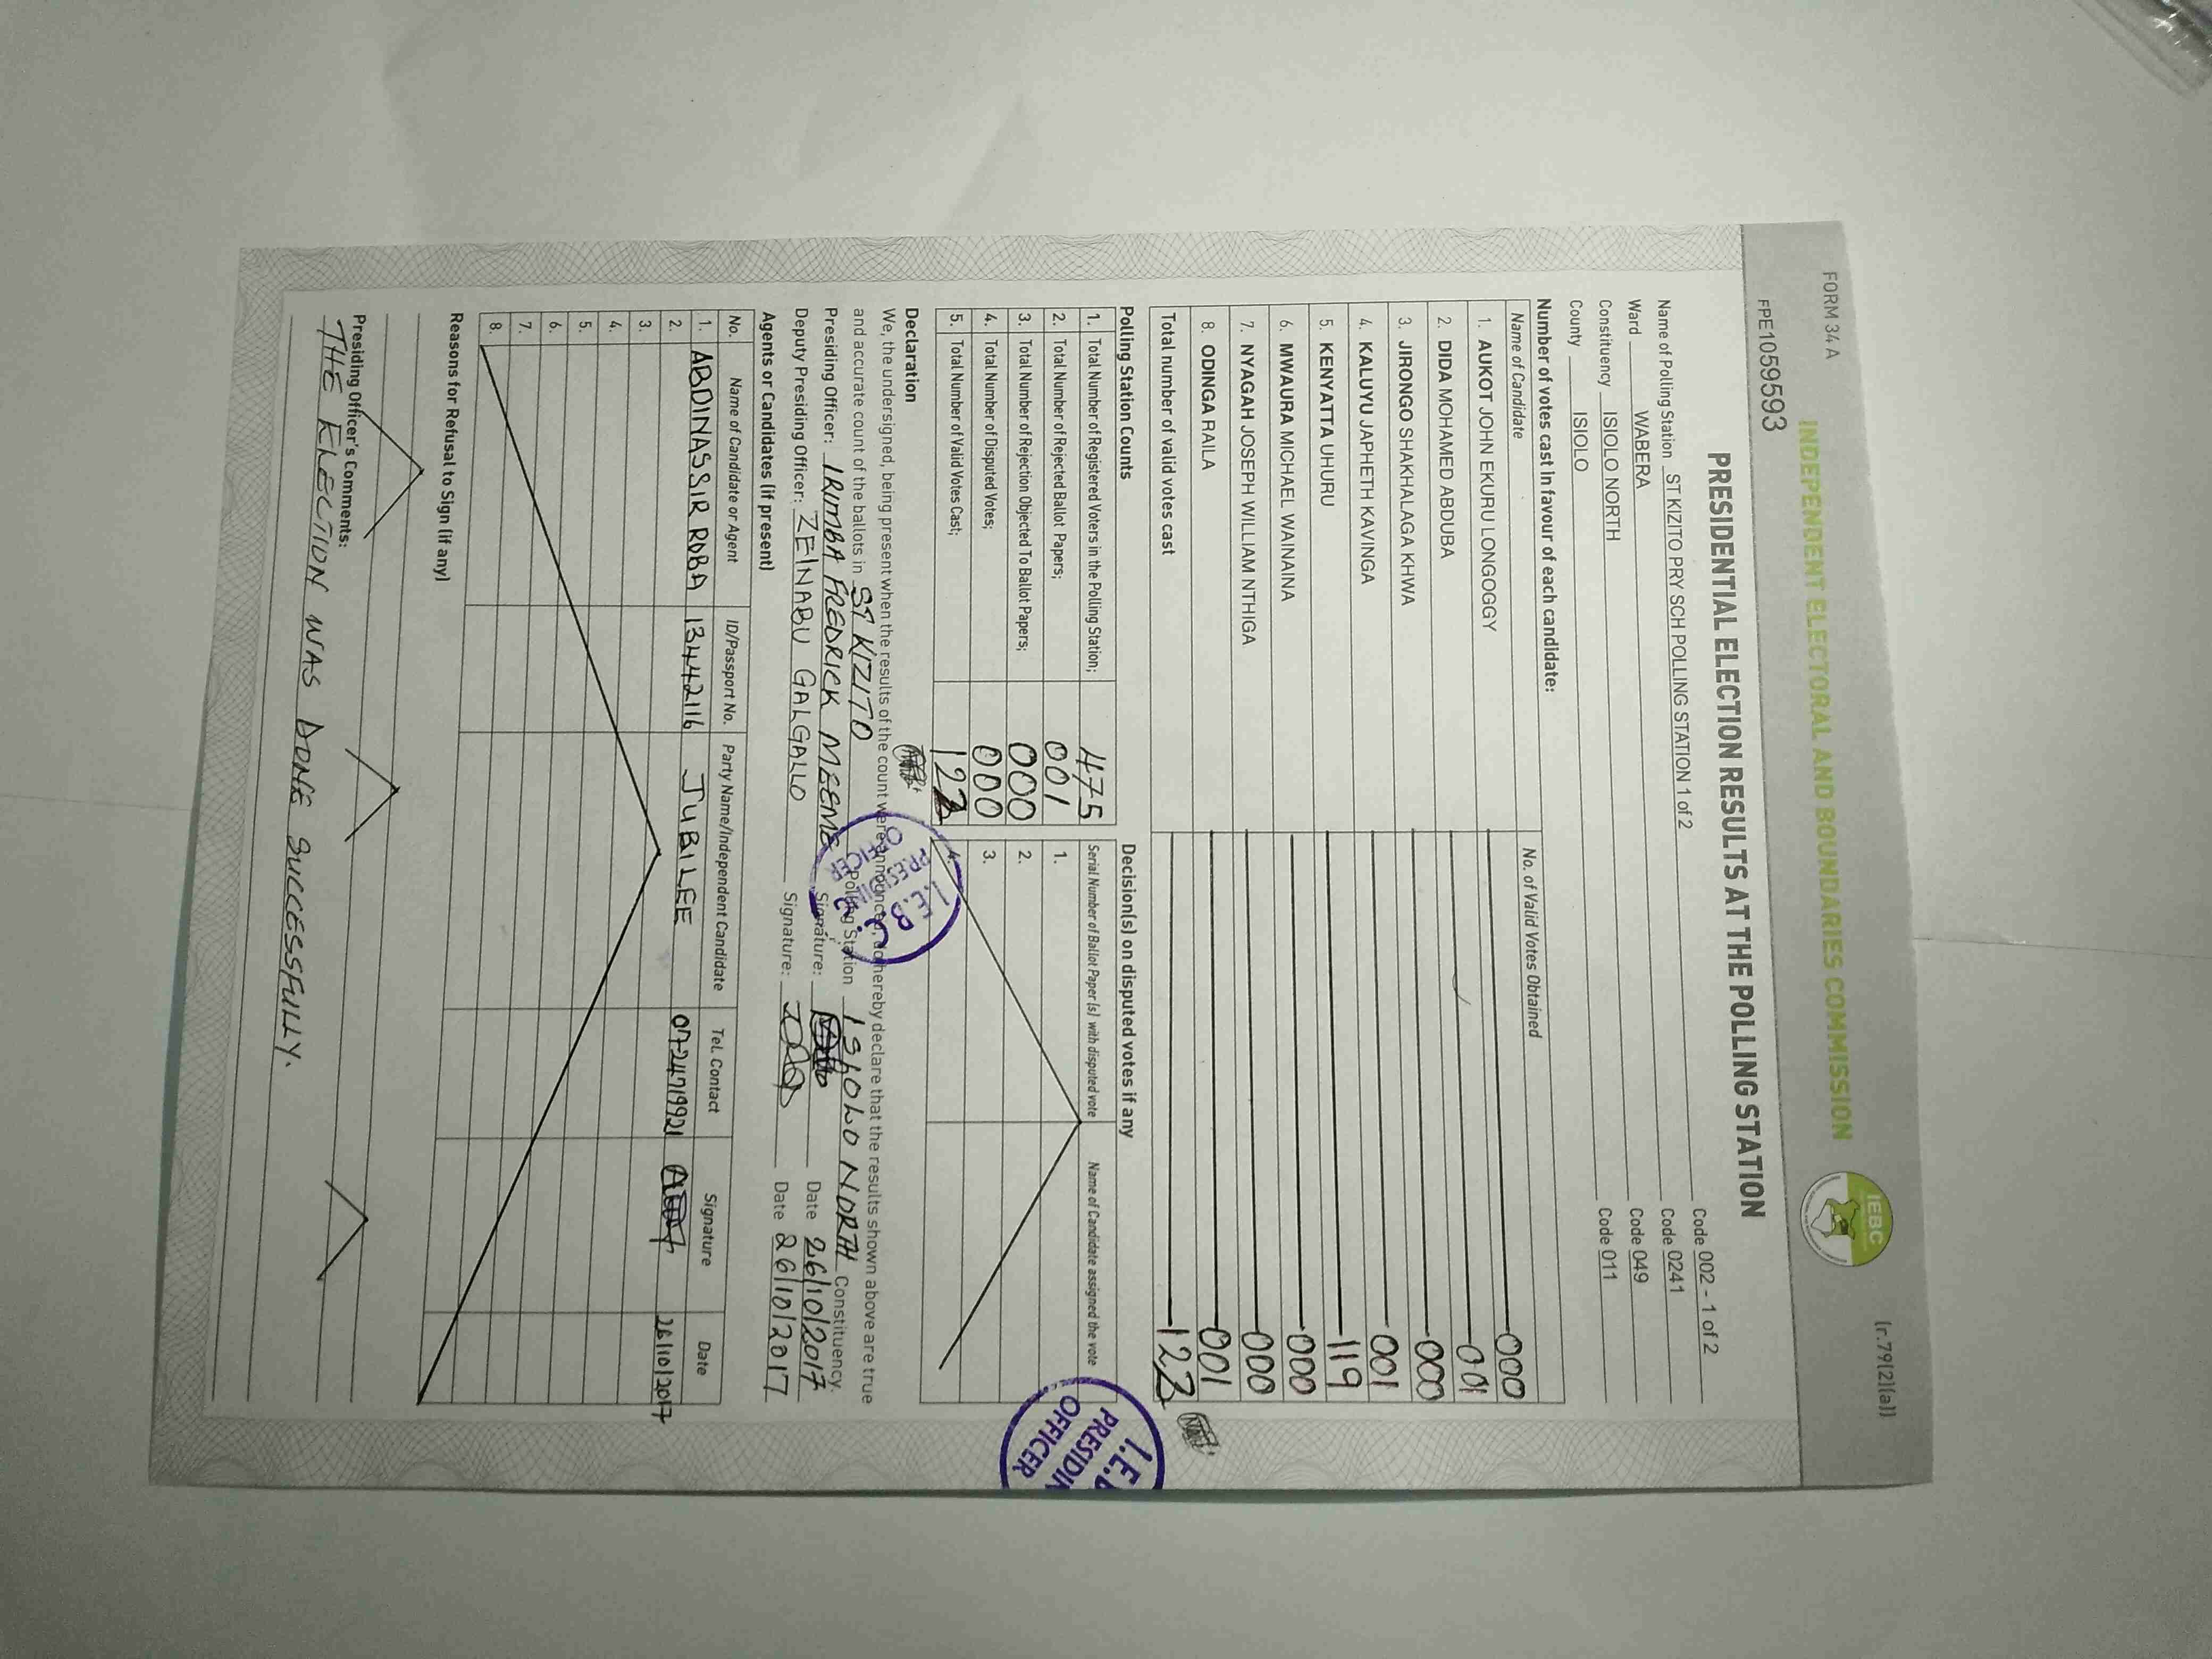 FORM 34 A
(r.79(2)(a))
INDEPENDENT ELECTORAL AND BOUNDARIES COMMISSION
IEBC
FPE1059593
PRESIDENTIAL ELECTION RESULTS AT THE POLLING STATION
Name of Polling Station ST KIZITO PRY SCH POLLING STATION 1 of 2 Code 002 - 1 of 2
Ward WABERA Code 0241
Constituency ISIOLO NORTH Code 049
County ISIOLO Code 011
Number of votes cast in favour of each candidate:
Name of Candidate No. of Valid Votes Obtained
1. AUKOT JOHN EKURU LONGOGGY 000
2. DIDA MOHAMED ABDUBA 001
3. JIRONGO SHAKHALAGA KHWA 000
4. KALUYU JAPHETH KAVINGA 001
5. KENYATTA UHURU 119
6. MWAURA MICHAEL WAINAINA 000
7. NYAGAH JOSEPH WILLIAM NTHIGA 000
8. ODINGA RAILA 001
Total number of valid votes cast 122
Polling Station Counts
1. Total Number of Registered Voters in the Polling Station; 475
2. Total Number of Rejected Ballot Papers; 001
3. Total Number of Rejection Objected To Ballot Papers; 000
4. Total Number of Disputed Votes; 000
5. Total Number of Valid Votes Cast; 122
Decision(s) on disputed votes if any
Serial Number of Ballot Paper (s) with disputed vote Name of Candidate assigned the vote
1.
2.
3.
4.
I.E.B
PRESIDIN
OFFICER
Declaration
We, the undersigned, being present when the results of the count were announced, do hereby declare that the results shown above are true
and accurate count of the ballots in ST KIZITO Polling Station ISIOLO NORTH Constituency.
Presiding Officer: IRIMBA FREDRICK MEEME Signature: Date 26/10/2017
Deputy Presiding Officer: ZEINABU GALGALLO Signature: Date 26/10/2017
I.E.B.C.
PRESIDING
OFFICER
Agents or Candidates (if present)
No. Name of Candidate or Agent ID/Passport No. Party Name/Independent Candidate Tel. Contact Signature Date
1. ABDINASSIR ROBA 13442116 JUBILEE 0724719921 26/10/2017
2.
3.
4.
5.
6.
7.
8.
Reasons for Refusal to Sign (if any)
Presiding Officer's Comments:
THE ELECTION WAS DONE SUCCESSFULLY.